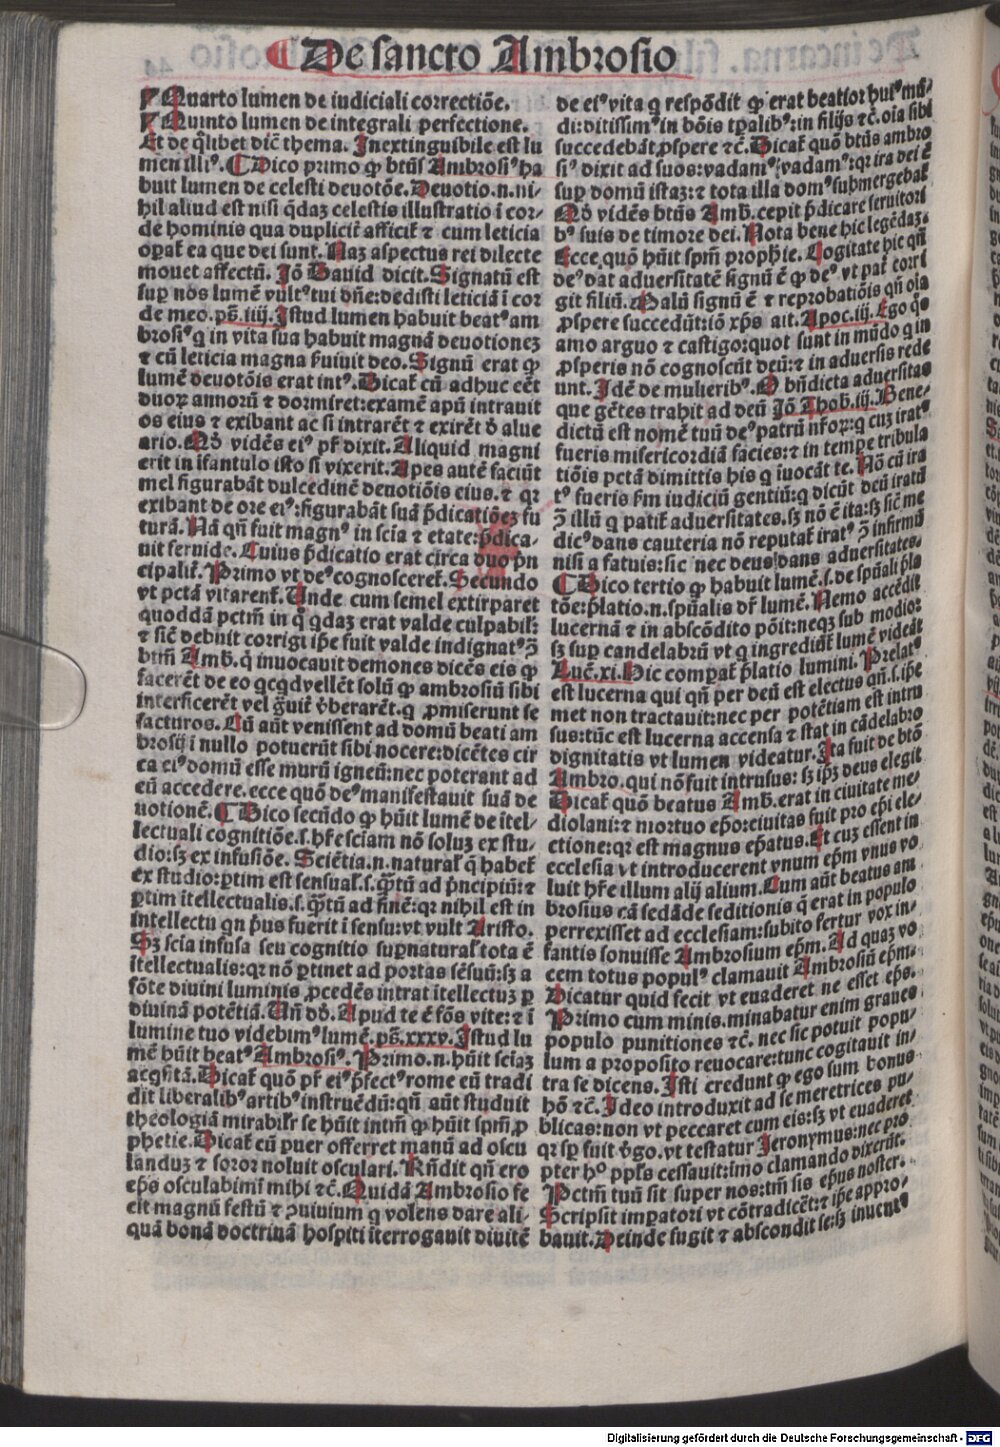 De sancto Ambrosio
Quarto lumen de iudiciali correctiōe.
Quinto lumen de integrali perfectione.
Et de q̄libet dic̄ thema. Inextinguibile est lu
men illiꝰ. Dico primo ꝙ btūs Ambrosiꝰ ha
buit lumen de celesti deuotōe. Deuotio .n. ni-
hil aliud est nisi q̄daz celestis illustratio ī cor-
de hominis qua duplicit̄ afficit̄ ⁊ cum leticia
opat̄ ea que dei sunt. Naz aspectus rei dilecte
mouet affectū. Jō Dauid dicit. Signatū est
sup nos lumē vultꝰ tui dn̄e: dedisti leticiā ī cor
de meo. ps̄. iiij. Istud lumen habuit beatꝰ am
brosiꝰ q in vita sua habuit magnā deuotionez
⁊ cū leticia magna ẜuiuit deo. Signū erat ꝙ
lumē deuotōis erat intꝰ. Dicat̄ cū adhuc eēt
duoꝝ annorū ⁊ dormiret: examē apū intrauit
os eius ⁊ exibant ac si intrarēt ⁊ exirēt d̄ alue
ario. Qd̄ vidēs eiꝰ pr̄ dixit. Aliquid magni
erit in īfantulo isto si vixerit. Apes autē faciūt
mel figurabāt dulcedinē deuotiōis eius. ⁊ qꝛ
exibant de ore eiꝰ: figurabāt suā p̄dicatiōez fu
turā. Nā qn̄ fuit magnꝰ in scīa ⁊ etate: p̄dica-
uit feruide. Cuius p̄dicatio erat circa duo pn
cipalit̄. Primo vt deꝰ cognosceret̄. Secundo
vt pctā vitarent̄. Unde cum semel extirparet
quoddā pctm̄ in q̄ qdaz erat valde culpabil̄:
⁊ sic̄ debuit corrigi ip̄e fuit valde indignatꝰ ꝯ̄
btm̄ Amb. q̄ inuocauit demones dicēs eis ꝙ
facerēt de eo qcqd vellēt solū ꝙ ambrosiū sibi
interficerēt vel ḡuit̄ v̄berarēt. q ꝓmiserunt se
facturos. Cū aūt venissent ad domū beati am
brosij ī nullo potuerūt sibi nocere: dicētes cir
ca eiꝰ domū esse murū igneū: nec poterant ad
eū accedere. ecce quō deꝰ manifestauit suā de
uotionē. Dico secūdo ꝙ hūit lumē de ītel-
lectuali cognitiōe. s. hr̄e sciam nō soluz ex stu-
dio: sz ex infusiōe. Sciētia .n. natural̄ q̄ habet̄
ex studio: ꝑtim est sensual̄ .s. q̄tū ad p̄ncipiū: ⁊
ꝑtim ītellectualis. s. q̄tū ad finē: qꝛ nihil est in
intellectu qn pꝰus fuerit ī sensu: vt vult Aristo.
Sz scīa infusa seu cognitio supnatural̄ tota ē
ītellectualis: qꝛ nō ꝑtinet ad portas sēsuū: sz a
fōte diuini luminis ꝓcedēs intrat ītellectuz ꝑ
diuinā potētiā. Un̄ dō. Apud te ē fōs vite: ⁊ ī
lumine tuo videbimꝰ lumē. ps̄. xxxv. Istud lu
mē hūit beatꝰ Ambrosiꝰ. Primo .n. hūit sciāz
acq̄sitā. Dicat̄ quō pr̄ eiꝰ p̄fectꝰ rome eū tradi
dit liberalibꝰ artibꝰ instruēdū: qn̄ aūt studuit
theologiā mirabilr̄ se hūit intm̄ ꝙ hūit spm̄ ꝓ
phetie. Dicat̄ cū puer offerret manū ad oscu
landuz ⁊ soror noluit osculari. Rn̄dit qn̄ ero
ep̄s osculabimī mihi ⁊c̄. Quidā Ambrosio fe
cit magnū festū ⁊ ꝯuiuium q volens dare ali-
quā bonā doctrinā hospiti īterrogauit diuitē
de eiꝰ vita q respōdit ꝙ erat beatior huiꝰ mū-
di: ditissimꝰ in bōis tp̄alibꝰ: in filijs ⁊c̄. oīa sibi
succedebāt ꝓspere ⁊c̄. Dicat̄ quō btūs ambro
siꝰ dixit ad suos: vadamꝰ vadamꝰ: qꝛ ira dei ē
sup domū istaz: ⁊ tota illa domꝰ submergebat̄
Qd̄ vidēs btūs Amb. cepit p̄dicare seruitori
bꝰ suis de timore dei. Nota bene hic legēdaz.
Ecce quō hūit spm̄ prophīe. Cogitate hic qn̄
deꝰ dat aduersitatē signū ē ꝙ deꝰ vt pat̄ corri
git filiū. Malū signū ē ⁊ reprobatiōis qn̄ oīa
ꝓspere succedūt: iō xp̄s ait. Apoc. iij. Ego q̄s
amo arguo ⁊ castigo: quot sunt in mūdo q in
ꝓsperis nō cognoscūt deū: ⁊ in aduersis rede
unt. Idē de mulieribꝰ. O bn̄dicta aduersitas
que gētes trahit ad deū Jō Thob. iij. Bene-
dictū est nomē tuū deꝰ patrū nr̄oꝝ: q cuz iratꝰ
fueris misericordiā facies: ⁊ in tempe tribula
tiōis pctā dimittis his q īuocāt te. Nō cū ira
tꝰ fueris ẜm iudiciū gentiū: q dicūt deū iratū
ꝯ̄ illū q patit̄ aduersitates. sz nō ē ita: sz sic̄ me
dicꝰ dans cauteria nō reputat̄ iratꝰ ꝯ̄ infirmū
nisi a fatuis: sic nec deus dans aduersitates.
Dico tertio ꝙ habuit lumē .s. de spūali p̄la
tōe: p̄latio .n. spūalis dr̄ lumē. Nemo accēdit
lucernā ⁊ in abscōdito pōit: neqz sub modio:
sz sup candelabrū vt q ingrediūt̄ lumē videāt
Luc̄. xi. Hic compat̄ p̄latio lumini. Prelatꝰ
est lucerna qui qn̄ per deū est electus qn̄ .s. ip̄e
met non tractauit: nec per potētiam est intru
sus: tūc est lucerna accensa ⁊ stat in cādelabro
dignitatis vt lumen videatur. Ita fuit de btō
Ambro. qui nō fuit intrusus: sz ip̄z deus elegit
Dicat̄ quō beatus Amb. erat in ciuitate me
diolani: ⁊ mortuo ep̄o: ciuitas fuit pro ep̄i ele-
ctione: qꝛ est magnus ep̄atus. Et cuz essent in
ecclesia vt introducerent vnum ep̄m vnus vo
luit hr̄e illum alij alium. Cum aūt beatus am
brosius cā sedāde seditionis q̄ erat in populo
perrexisset ad ecclesiam: subito fertur vox in-
fantis sonuisse Ambrosium ep̄m. Ad quaz vo
cem totus populꝰ clamauit Ambrosiū ep̄m.
Dicatur quid fecit vt euaderet ne esset ep̄s.
Primo cum minis. minabatur enim graues
populo punitiones ⁊c̄. nec sic potuit popu-
lum a proposito reuocare: tunc cogitauit in-
tra se dicens. Isti credunt ꝙ ego sum bonus
hō ⁊c̄. Ideo introduxit ad se meretrices pu-
blicas: non vt peccaret cum eis: sz vt euaderet
qꝛ sp̄ fuit v̄go. vt testatur Jeronymus: nec pro
pter hoꝰ pp̄ls cessauit: imo clamando dixerūt.
Pctm̄ tuū sit super nos: tm̄ sis ep̄us noster.
Scripsit impatori vt cōtradicēt: ⁊ ip̄e appro-
bauit. Deinde fugit ⁊ abscondit se: sz inuentꝰ
Digitalisierung gefördert durch die Deutsche Forschungsgemeinschaft - DFG